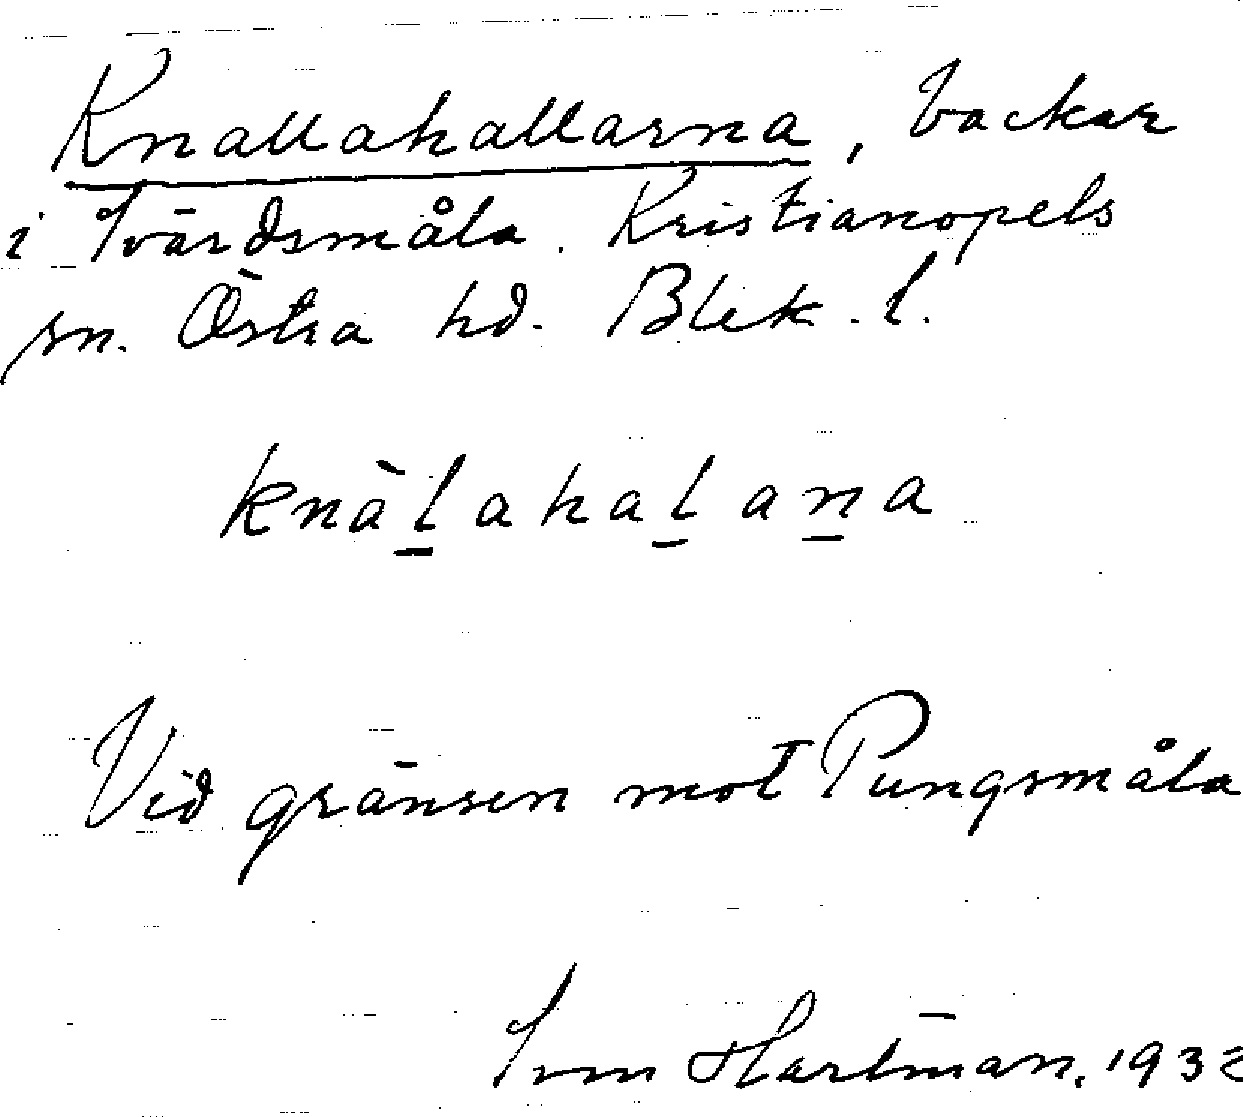 Knallahallarna, backar
i Svärdsmåla. Kristianopels
sn. Östra hd. Blek. l.
knàl̲ahal̲an̲a
Vid gränsen mot Pungsmåla
Sven Hartman, 1932